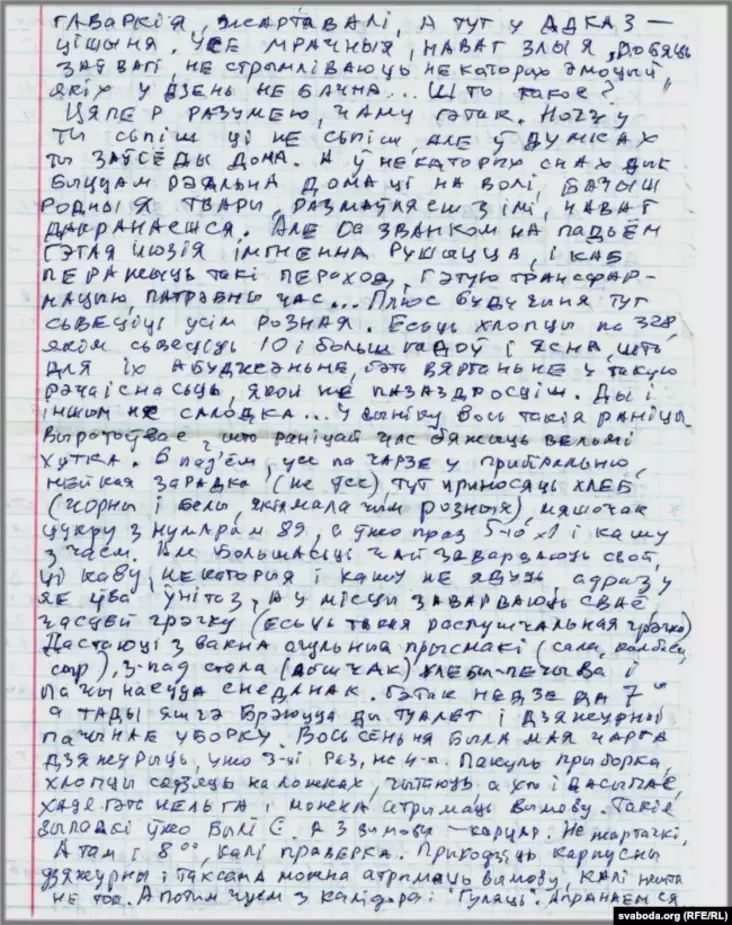 гаваркія, жартавалі, а тут у адказ —
цішыня. Усе мрачныя, нават злыя, робяць
заўвагі, не стрымліваюць некаторых эмоцый,
якіх у дзень не бачна... Што такое?
Цяпер разумею, чаму гэтак. Ноччу
ты сьпіш ці не сьпіш, але ў думках
ты заўсёды дома. А ў некаторых снах дык
быццам рэальна дома ці на волі, бачыш
родныя твары, размаўляеш з імі, нават
дакранаешся. Але са званком на падъём
гэтая ілюзія імгненна рушыцца, і каб
перажыць такі пераход, гэтую трансфар-
мацыю, патрэбны час... Плюс будучыня тут
сьвеціць усім розная. Ёсьць хлопцы па 328,
якім сьвеціць 10 і больш гадоў і ясна, што
для іх абуджэньне, гэта вяртаньне у такую
рэчаіснасьць, якой не пазаздросціш. Ды і
іншым не салодка... У выніку вось такія раніцы
Выратоўвае, што раніцай час бяжыць вельмі
хутка. 6 пад'ём, усе па чарзе у прыбіральню,
нейкая зарадка (не ўсе) тут прыносяць хлеб
(чорны і белы, якія мала чым розныя), мяшочак
цукру з нумарам 89, а ўжо праз 5-10 хв і кашу
з чаем. Але большасьць чай заварваюць свой,
ці каву, некаторыя і кашу не ядуць, адразу
яе ў унітаз, а у місцы заварваюць сваё,
часцей грэчку (ёсьць такая распушчальная грэчка)
Дастаюць з вакна агульныя прысмакі (сала, колбасы,
сыр), з-пад стала (абшчак) хлебы-печыва і
пачынаецца сняданак. Гэтак недзе да 7
а тады яшчэ брэюцца ды туалет і дзяжурны
пачынае уборку. Вось сеньня была мая чарга
дзяжурыць, ужо 3-ці раз, на 4-ы. Пакуль прыборка,
хлопцы садзяць на ложках, чытаюць а хто і дасыпае,
хаця гэта нельга і можна атрымаць вымову. Такія
выпадкі ўжо былі. А 3 вымовы — карцар. Не жартачкі.
А там і 8 00, калі праверка. Прыходзіць карпусны
дзяжурны і таксама можна атрымаць вымову, калі нешта
не так. А потым чуем з калідора: "Гуляць". Апранаемся
svaboda.org (RFE/RL)